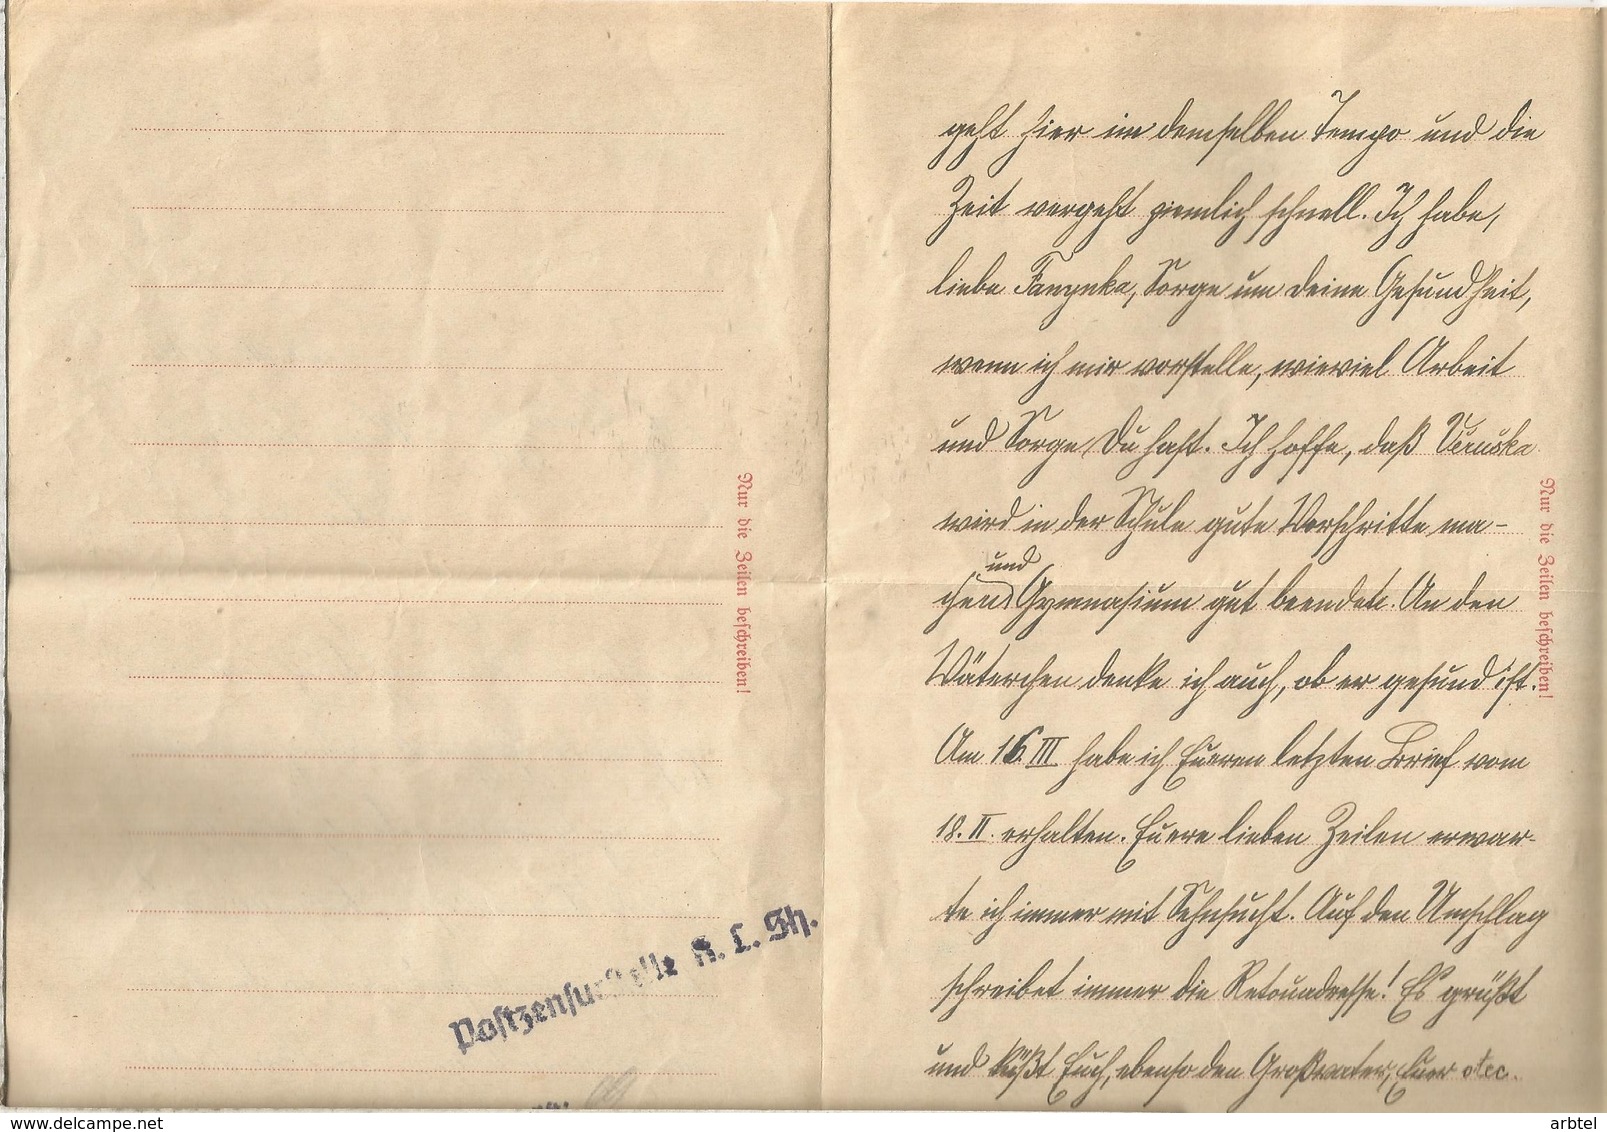 geht hier im demselben Tempo und die
Zeit vergeht ziemlich schnell. Ich habe,
liebe Fanynka, Sorge um deine Gesundheit,
wenn ich mir vorstelle, wieviel Arbeit
und Sorge Du hast. Ich hoffe, daß Věruška
wird in der Schule gute Vorschritte ma-
und
chen Gymnasium gut beendete. An den
Väterchen denke ich auch, ob er gesund ist.
Am 16. III habe ich Eueren letzten Brief vom
18. II. erhalten. Euere lieben Zeilen erwar-
te ich immer mit Sehnsucht. Auf den Umschlag
schreibet immer die Retouradresse! Es grüßt
und küßt Euch, ebenso den Großvater, Euer otec.
Nur die Zeilen beschreiben!
Nur die Zeilen beschreiben!
Postzensurstelle K. L. Sh.
https://www.delcampe.net
arbtel